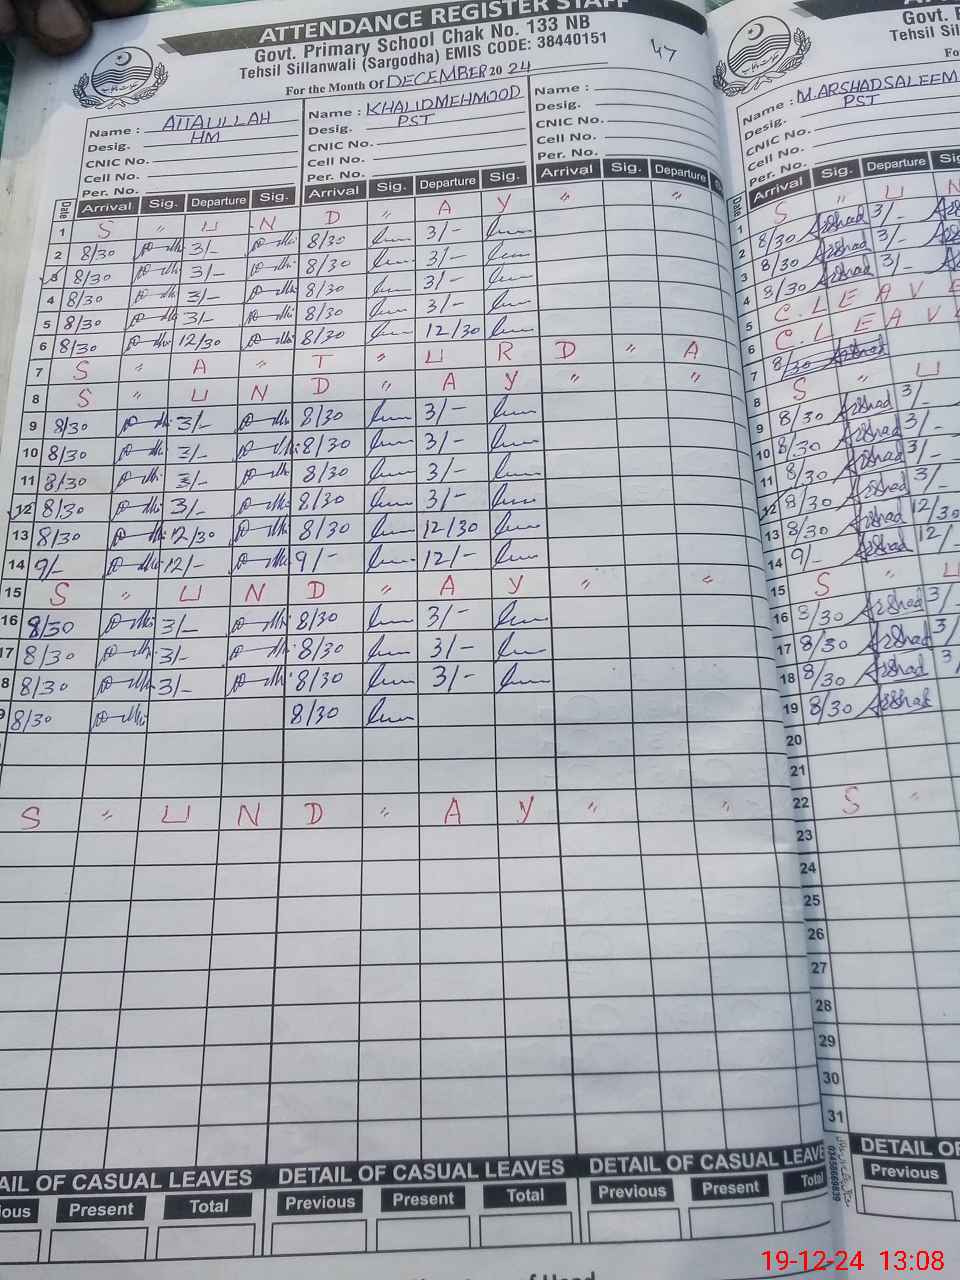 ATTENDANCE REGISTER STAFF
Govt. Primary School Chak No. 133 NB
Tehsil Sillanwali (Sargodha) EMIS CODE: 38440151
47
For the Month Of DECEMBER 20 24
Name : ATTAULLAH Name : KHALIDMEHMOOD Name :
Desig. HM Desig. PST Desig.
CNIC No. CNIC No. CNIC No.
Cell No. Cell No. Cell No.
Per. No. Per. No. Per. No.
Date Arrival Sig. Departure Sig. Arrival Sig. Departure Sig. Arrival Sig. Departure
1 S " U N D " A Y " "
2 8/30 3/- 8/30 3/-
3 8/30 3/- 8/30 3/-
4 8/30 3/- 8/30 3/-
5 8/30 3/- 8/30 3/-
6 8/30 12/30 8/30 12/30
7 S " A " T " U R D " A
8 S " U N D " A Y " "
9 8/30 3/- 8/30 3/-
10 8/30 3/- 8/30 3/-
11 8/30 3/- 8/30 3/-
12 8/30 3/- 8/30 3/-
13 8/30 12/30 8/30 12/30
14 9/- 12/- 9/- 12/-
15 S " U N D " A Y " "
16 8/30 3/- 8/30 3/-
17 8/30 3/- 8/30 3/-
8 8/30 3/- 8/30 3/-
9 8/30 8/30
S " U N D " A Y " "
AIL OF CASUAL LEAVES DETAIL OF CASUAL LEAVES DETAIL OF CASUAL LEAVE
ious Present Total Previous Present Total Previous Present Total
Govt. F
Tehsil Sil
Fo
Name : M.ARSHADSALEEM
Desig. PST
CNIC No.
Cell No.
Per. No.
Date Arrival Sig. Departure Sig
1 S " U N
2 8/30 Arshad 3/-
3 8/30 Arshad 3/-
4 8/30 Arshad 3/-
5 C. L E A V E
6 C. L E A V
7 8/30 Arshad
8 S " U
9 8/30 Arshad 3/-
10 8/30 Arshad 3/-
11 8/30 Arshad 3/-
12 8/30 Arshad 3/-
13 8/30 Arshad 12/30
14 9/- Arshad 12/-
15 S " U
16 8/30 Arshad 3/
17 8/30 Arshad 3/
18 8/30 Arshad 3/
19 8/30 Arshad
20
21
22 S "
23
24
25
26
27
28
29
30
31
DETAIL OF
Previous
19-12-24 13:08